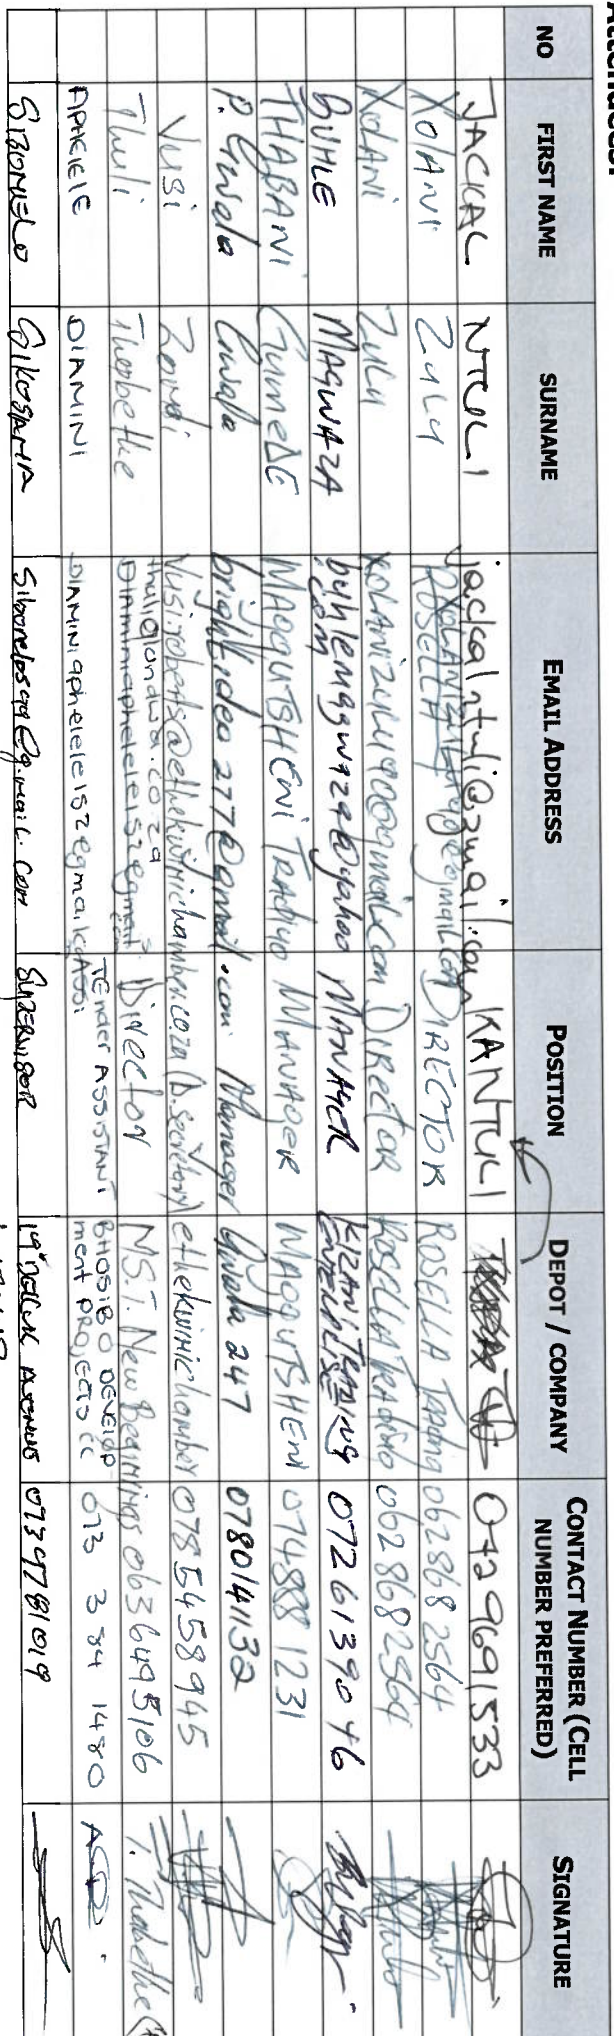 Attendees:
NO FIRST NAME SURNAME EMAIL ADDRESS POSITION DEPOT / COMPANY CONTACT NUMBER (CELL NUMBER PREFERRED) SIGNATURE
JACKAL NTULI jackalntuli@gmail.com KANTULI 0729691533
XOLANI ZULU ROSELLA DIRECTOR ROSELLA TRADING 0628682564
XOLANI ZULU XOLANIZULU90@gmail.com DIRECTOR ROSELLA TRADING 0628682564
BUHLE MAGWAZA buhlemagwaza@yahoo.com MANAGER KIZANI TRADING ENTERPRISE 0726139046
THABANI GUMEDE MAQQUTSHENI TRADING MANAGER MAQQUTSHENI 0748881231
P. Gwala Gwala brightideo277@gmail.com Manager Gwala 247 078014132
Vusi Zondi Vusi.roberts@ethekwinichamber.co.za (D. Secretary) ethekwinichamber 0785458945
Thuli Thobethe thuliqondwa.co.za Diammaphelele152@gmail.com Director MS.T. New Beginnings 0636495106 T. Thabethe
APHELELE DIAMINI DIAMINIaphelele152@gmail.com TENder ASSISTANT BHOSIBO DEVELOPment PROJECTS CC 073 384 1480
SIBONELO GIKOSANA Sibonelosgq@g.mail.com SUPERVISOR 19 AVENUE 0739781019